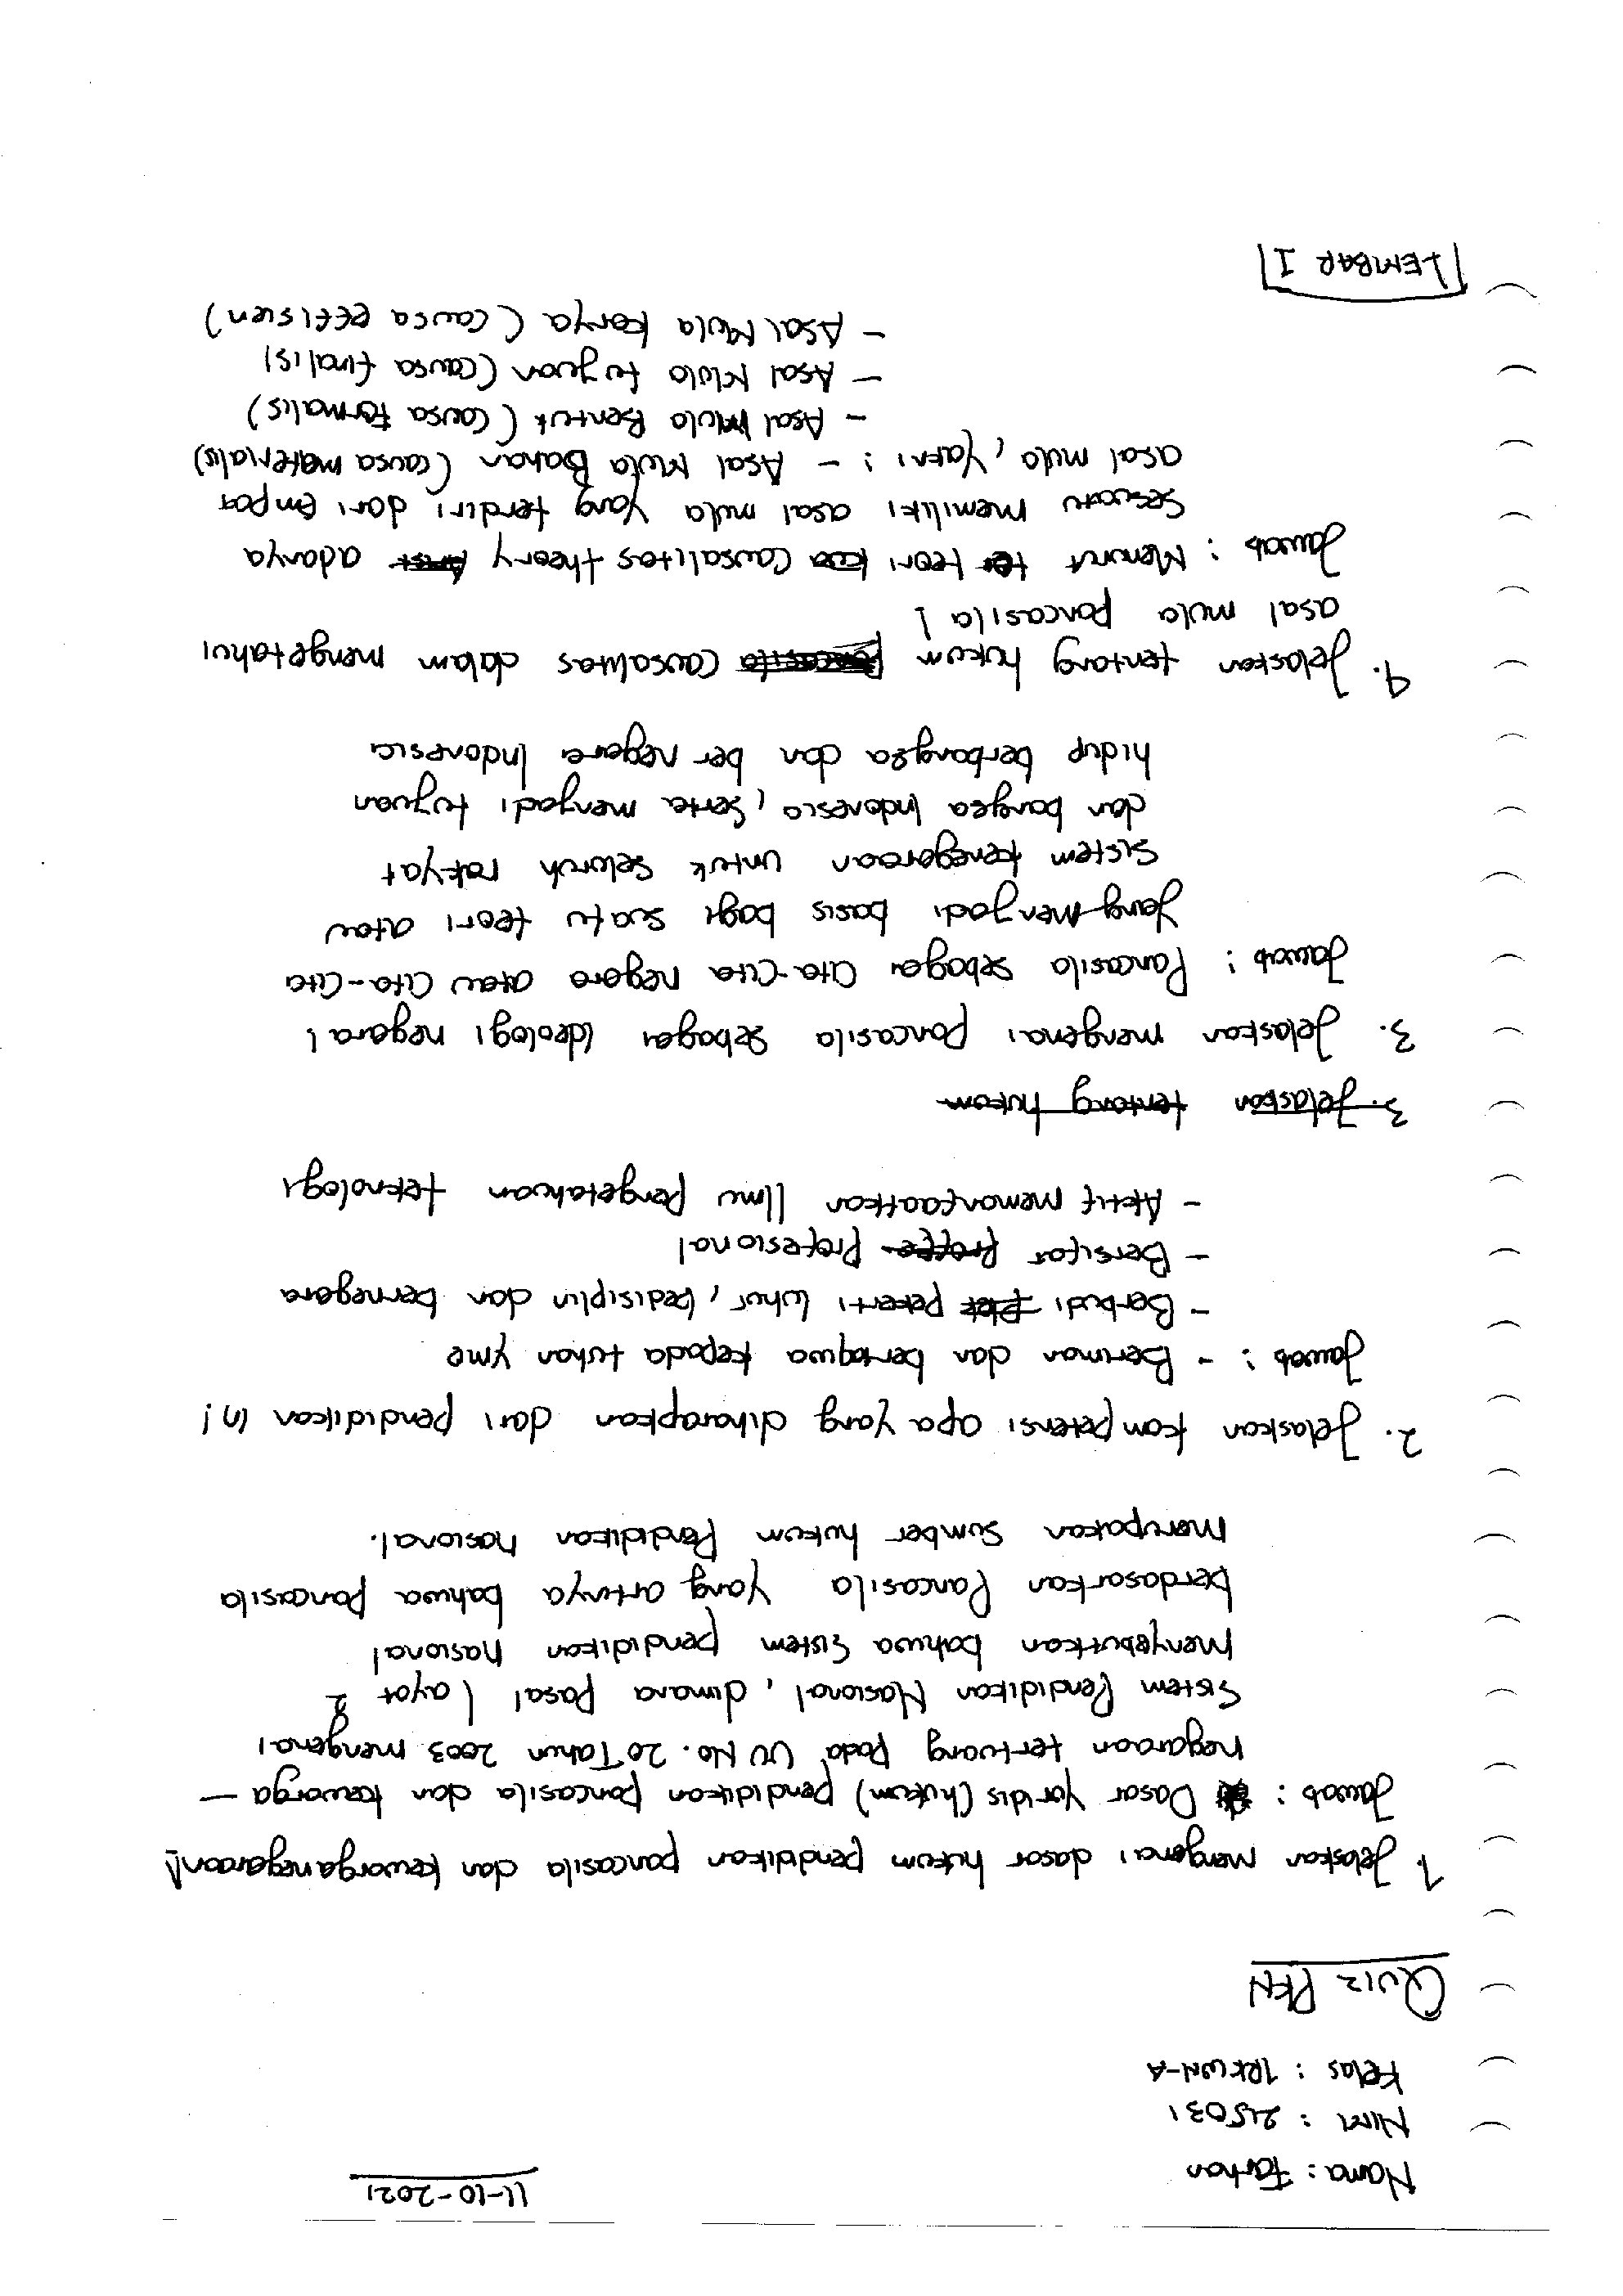 11-10-2021
Nama : Farhan
NIM : 215031
Kelas : 1RKWN-A
Quiz PKN
1. Jelaskan mengenai dasar hukum pendidikan pancasila dan kewarganegaraan!
Jawab : Dasar Yuridis (hukum) pendidikan pancasila dan kewarga-
negaraan tertuang pada UU No. 20 Tahun 2003 mengenai
Sistem Pendidikan Nasional, dimana Pasal 1 ayat 2
menyebutkan bahwa Sistem pendidikan nasional
berdasarkan Pancasila yang artinya bahwa pancasila
merupakan Sumber hukum Pendidikan nasional.
2. Jelaskan kompetensi apa yang diharapkan dari pendidikan in!
Jawab : - Beriman dan bertaqwa kepada tuhan yme
- Berbudi pekerti luhur, bedisiplin dan bernegara
- Bersifat Profesional
- Aktif memanfaatkan Ilmu pengetahuan teknologi
3. Jelaskan tentang hukum
3. Jelaskan mengenai pancasila sebagai Ideologi negara!
Jawab : Pancasila sebagai Cita-Cita negara atau Cita-Cita
yang menjadi basis bagi suatu teori atau
sistem kenegaraan untuk seluruh rakyat
dan bangsa Indonesia, Serta menjadi tujuan
hidup berbangsa dan ber negara Indonesia
4. Jelaskan tentang hukum pancasila causalitas dalam mengetahui
asal mula pancasila!
Jawab : Menurut teori causalitas theory adanya
Sesuatu memiliki asal mula yang terdiri dari empat
asal mula, yakni : - Asal Mula Bahan (causa materialis)
- Asal Mula Bentuk (causa Formalis)
- Asal Mula tujuan (causa finalis)
- Asal Mula karya (causa effisien)
LEMBAR 1